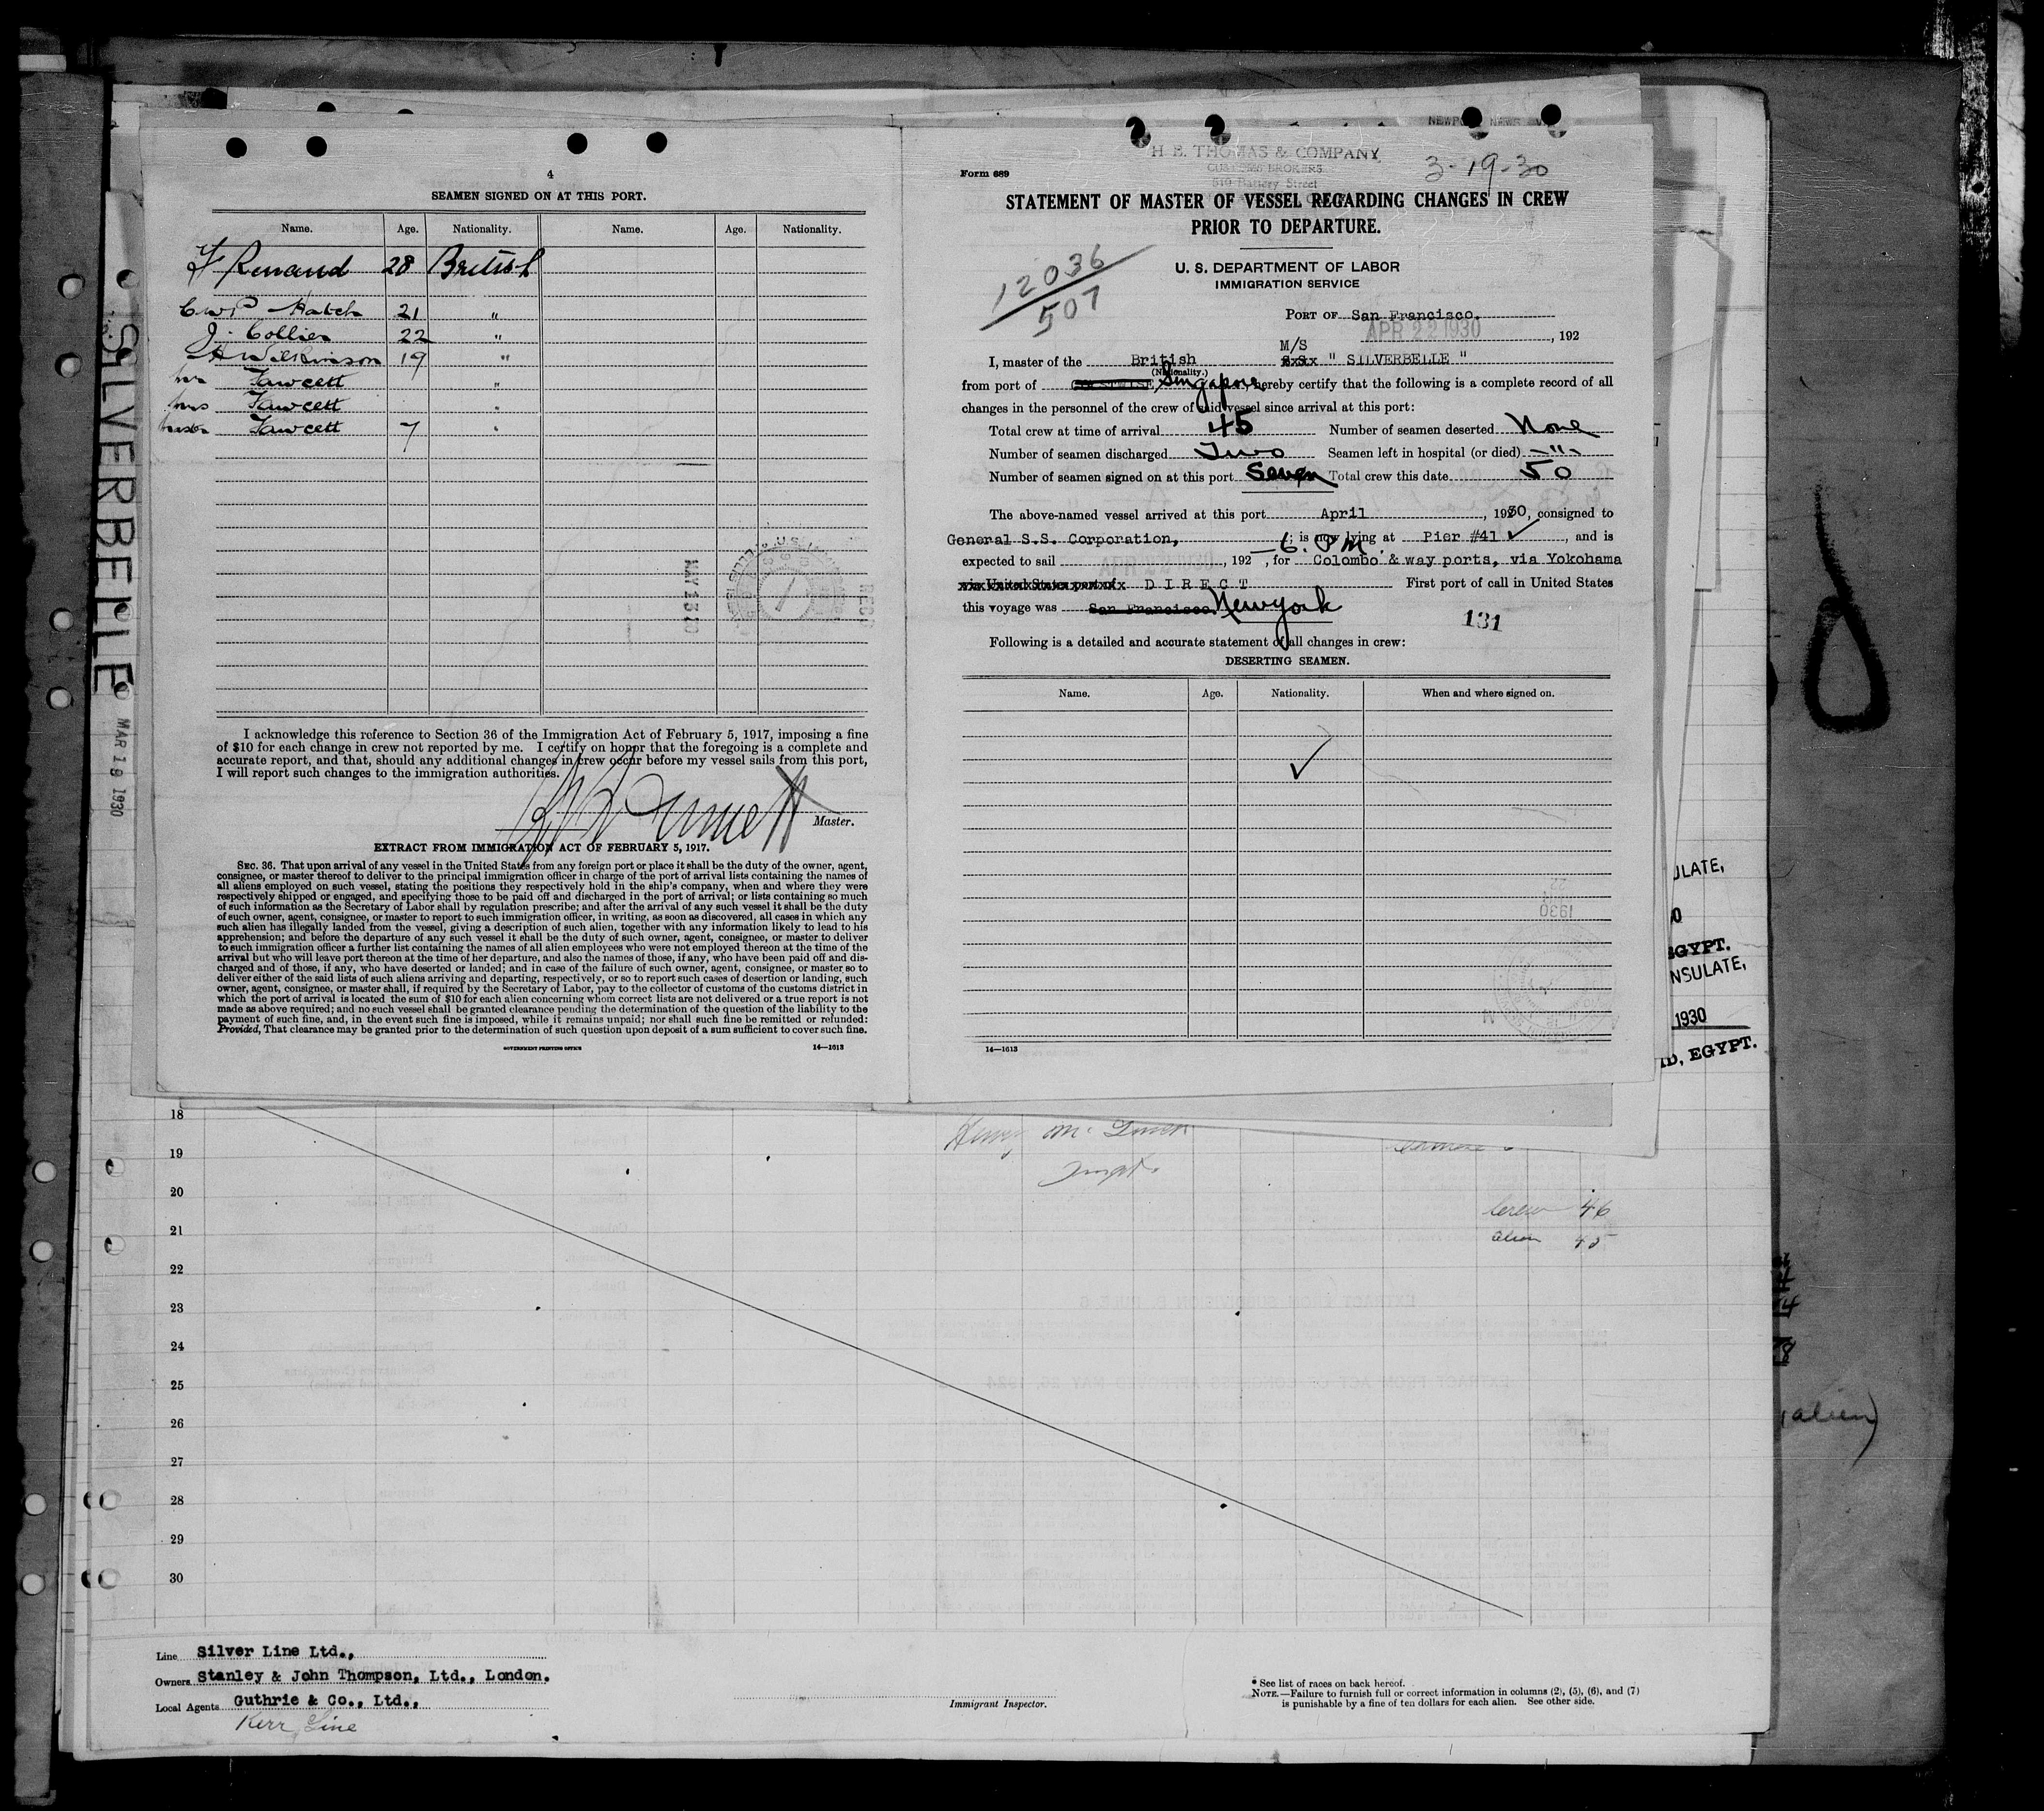 4
SEAMEN SIGNED ON AT THIS PORT.
Name. Age. Nationality. Name. Age. Nationality.
F Renaud 28 British
C W P Hatch 21 "
J. Collier 22 "
A Wilkinson 19 "
Mr Fawcett "
Mrs Fawcett "
Master Fawcett 7 "
MAY 13 30
I acknowledge this reference to Section 36 of the Immigration Act of February 5, 1917, imposing a fine
of $10 for each change in crew not reported by me. I certify on honor that the foregoing is a complete and
accurate report, and that, should any additional changes in crew occur before my vessel sails from this port,
I will report such changes to the immigration authorities.
Master.
EXTRACT FROM IMMIGRATION ACT OF FEBRUARY 5, 1917.
SEC. 36. That upon arrival of any vessel in the United States from any foreign port or place it shall be the duty of the owner, agent,
consignee, or master thereof to deliver to the principal immigration officer in charge of the port of arrival lists containing the names of
all aliens employed on such vessel, stating the positions they respectively hold in the ship's company, when and where they were
respectively shipped or engaged, and specifying those to be paid off and discharged in the port of arrival; or lists containing so much
of such information as the Secretary of Labor shall by regulation prescribe; and after the arrival of any such vessel it shall be the duty
of such owner, agent, consignee, or master to report to such immigration officer, in writing, as soon as discovered, all cases in which any
such alien has illegally landed from the vessel, giving a description of such alien, together with any information likely to lead to his
apprehension; and before the departure of any such vessel it shall be the duty of such owner, agent, consignee, or master to deliver
to such immigration officer a further list containing the names of all alien employees who were not employed thereon at the time of the
arrival but who will leave port thereon at the time of her departure, and also the names of those, if any, who have been paid off and dis-
charged and of those, if any, who have deserted or landed; and in case of the failure of such owner, agent, consignee, or master so to
deliver either of the said lists of such aliens arriving and departing, respectively, or so to report such cases of desertion or landing, such
owner, agent, consignee, or master shall, if required by the Secretary of Labor, pay to the collector of customs of the customs district in
which the port of arrival is located the sum of $10 for each alien concerning whom correct lists are not delivered or a true report is not
made as above required; and no such vessel shall be granted clearance pending the determination of the question of the liability to the
payment of such fine, and, in the event such fine is imposed, while it remains unpaid; nor shall such fine be remitted or refunded:
Provided, That clearance may be granted prior to the determination of such question upon deposit of a sum sufficient to cover such fine.
GOVERNMENT PRINTING OFFICE 14—1613
H. E. THOMAS & COMPANY
CUSTOMS BROKERS
510 Battery Street
3-19-30
Form 689
STATEMENT OF MASTER OF VESSEL REGARDING CHANGES IN CREW
PRIOR TO DEPARTURE.
12036
507
U. S. DEPARTMENT OF LABOR
IMMIGRATION SERVICE
PORT OF San Francisco.
APR 22 1930, 192
I, master of the British M/S S.S. " SILVERBELLE "
(Nationality.)
from port of Singapore, hereby certify that the following is a complete record of all
changes in the personnel of the crew of said vessel since arrival at this port:
Total crew at time of arrival 45 Number of seamen deserted None
Number of seamen discharged Two Seamen left in hospital (or died) -"-
Number of seamen signed on at this port Seven Total crew this date 50
The above-named vessel arrived at this port April, 1930, consigned to
General S.S. Corporation, ; is now lying at Pier #41, and is
expected to sail APR 22 1930, 192 —6. PM., for Colombo & way ports, via Yokohama
via United States port of DIRECT First port of call in United States
this voyage was San Francisco. New york
131
Following is a detailed and accurate statement of all changes in crew:
DESERTING SEAMEN.
Name. Age. Nationality. When and where signed on.
14—1613
SILVERBELLE
MAR 19 1930
ULATE,
EGYPT.
NSULATE,
1930
D, EGYPT.
18
19
20
21
22
23
24
25
26
27
28
29
30
Crew 46
Alien 45
(alien)
Line Silver Line Ltd.,
Owners Stanley & John Thompson, Ltd., London.
Local Agents Guthrie & Co., Ltd.,
Kerr Line
Immigrant Inspector.
* See list of races on back hereof.
NOTE.—Failure to furnish full or correct information in columns (2), (5), (6), and (7)
is punishable by a fine of ten dollars for each alien. See other side.